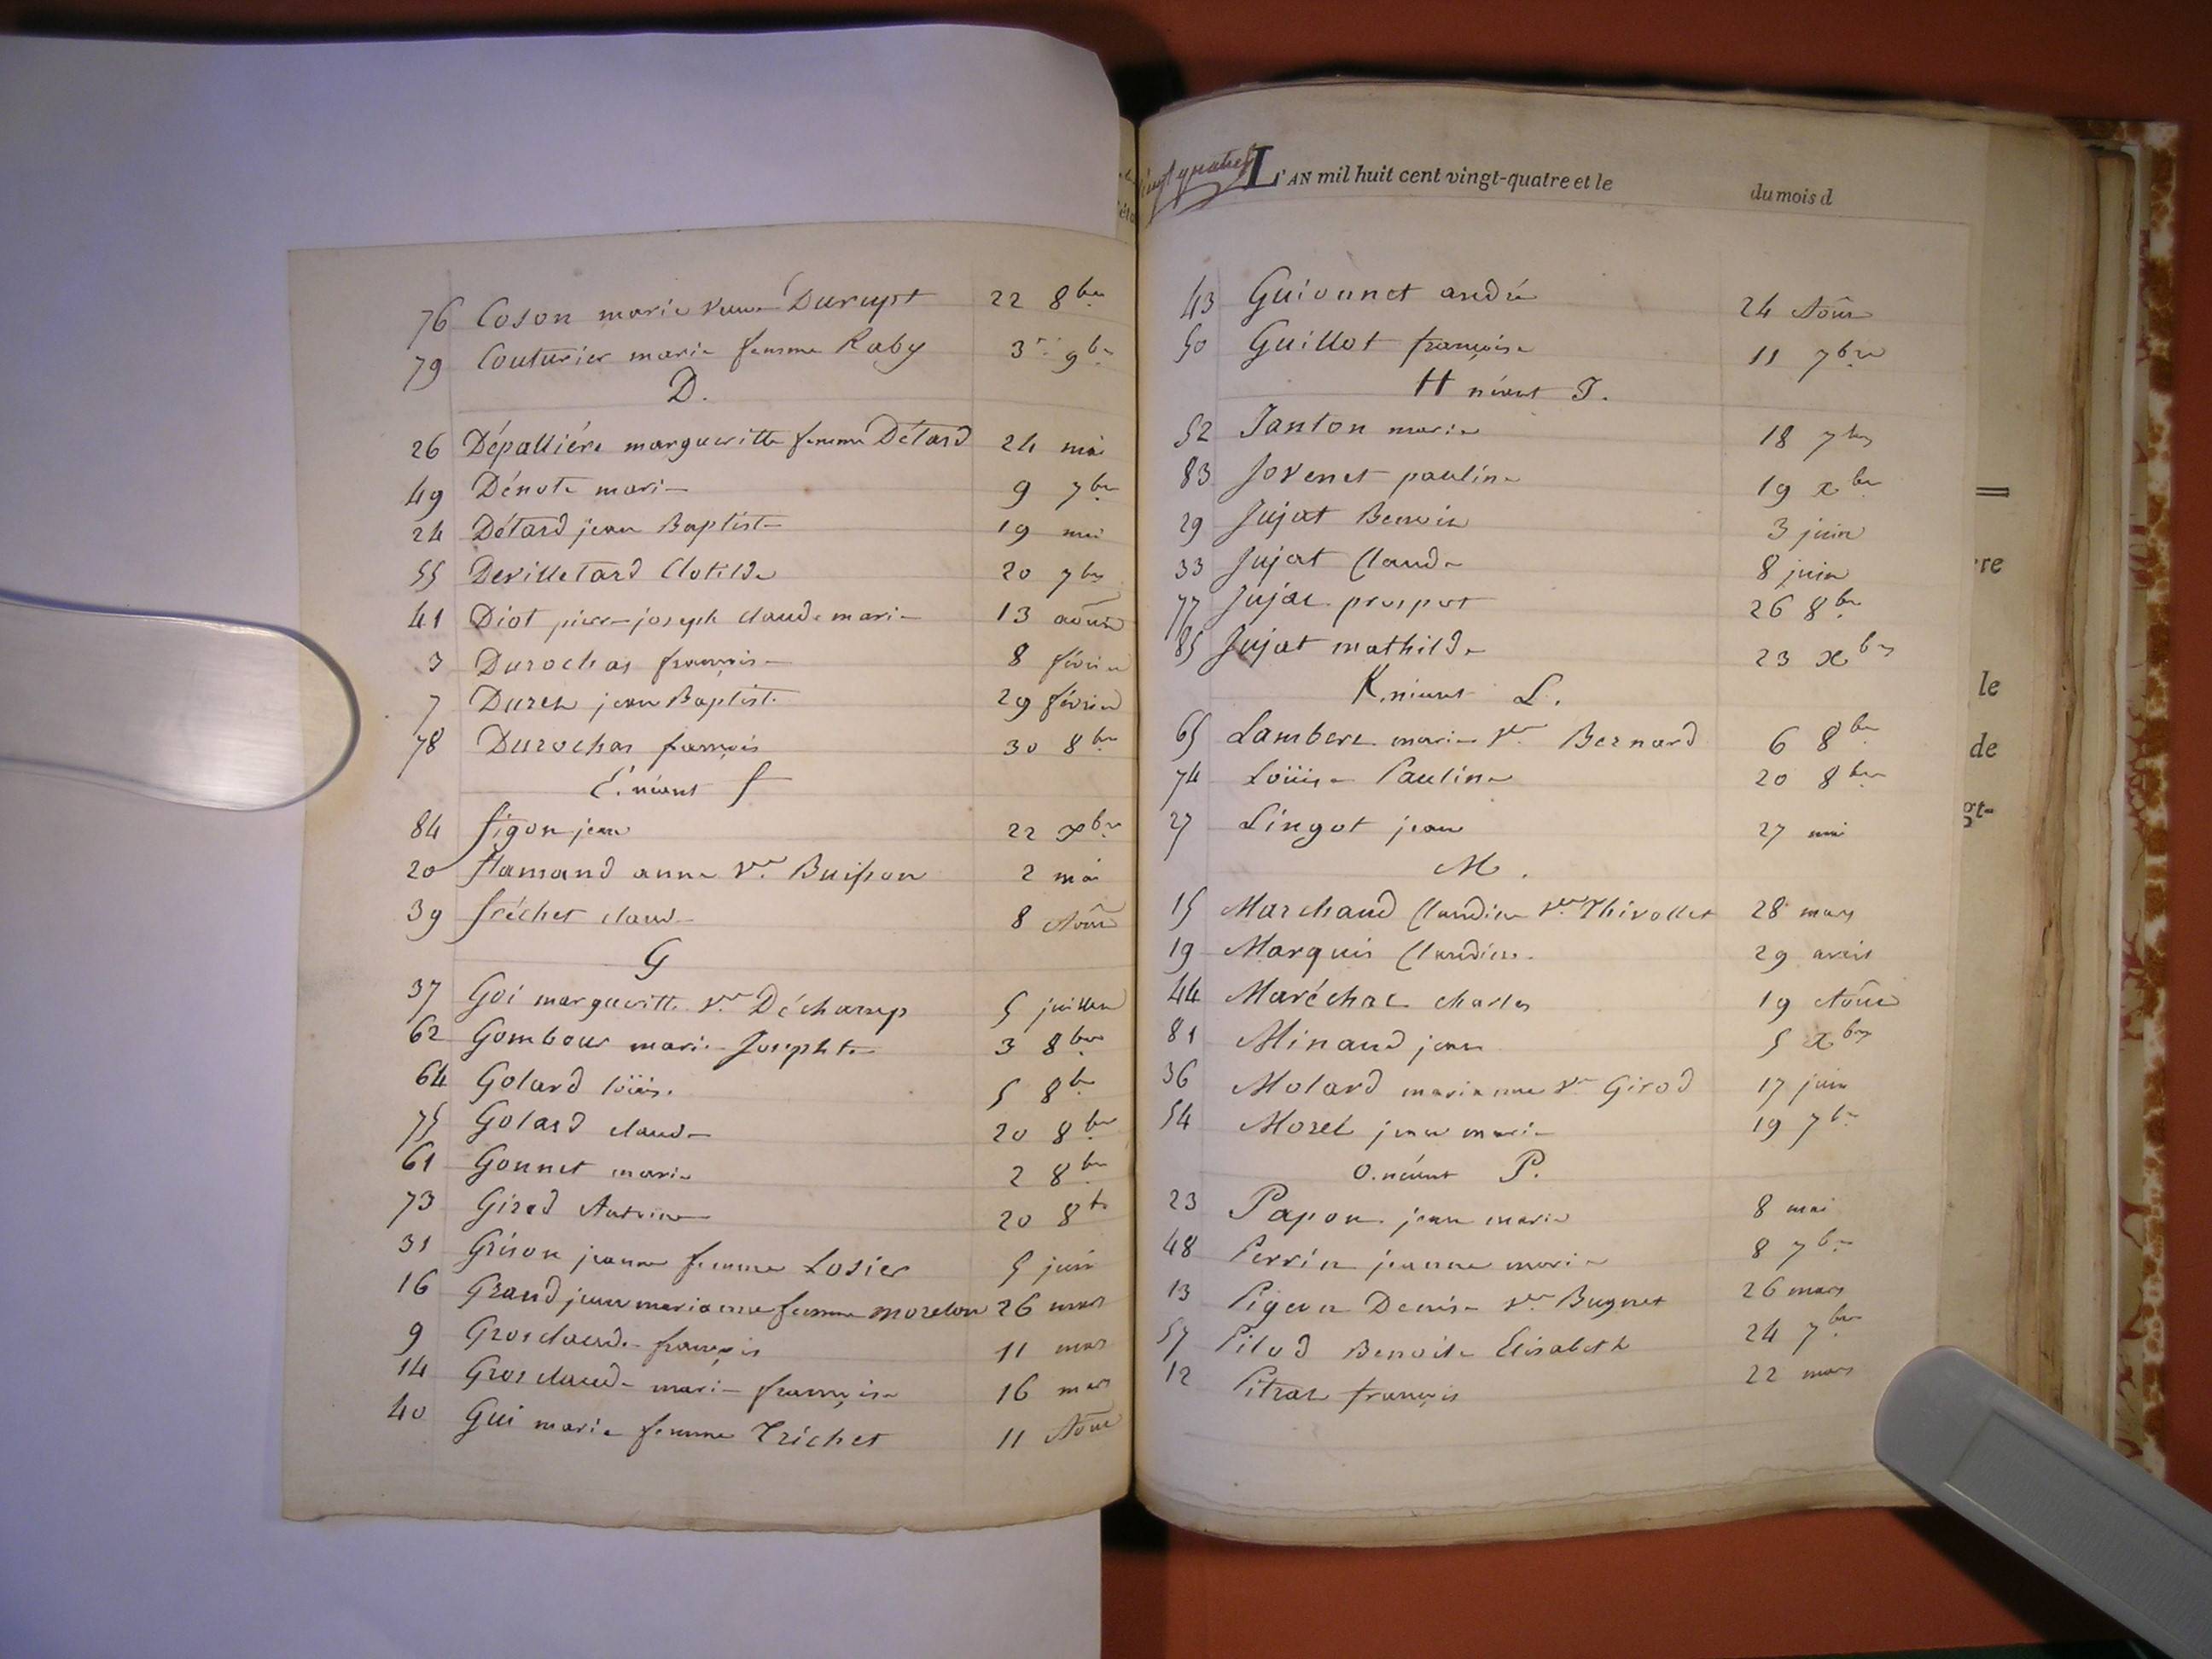 76 Coson marie veuve Durupt 22 8bre
79 Couturier marie femme Raby 3 9bre
D.
26 Dépallière margueritte femme Détard 24 mai
49 Dénote marie 9 7bre
24 Détard jean Baptiste 19 mai
55 Devilletard Clotilde 20 7bre
41 Diot pierre joseph claude marie 13 août
3 Durochas françois 8 février
7 Duret jean Baptiste 29 février
78 Durochas françois 30 8bre
E. néant f
84 figon jean 22 xbre
20 flamand anne ve. Buisson 2 mai
39 fréchet claude 8 Août
G
37 Goi margueritte ve. Déchamp 5 juillet
62 Gombour marie Josephte 3 8bre
64 Golard loüise 5 8bre
75 Golard claude 20 8bre
61 Gonnet marie 2 8bre
73 Girod Antoine 20 8bre
31 Grison jeanne femme Losier 5 juin
16 Grandjean marianne femme morelon 26 mars
9 Grosclaude françois 11 mars
14 Grosclaude marie françoise 16 mars
40 Gui marie femme Trichet 11 Août
vingt quatre
L'AN mil huit cent vingt-quatre et le du mois d
43 Guionnet andré 24 Août
50 Guillot françoise 11 7bre
H néant J.
52 Janton marie 18 7bre
83 Jovenet pauline 19 xbre
29 Jujat Benoit 3 juin
33 Jujat Claude 8 juin
77 Jujat prospert 26 8bre
85 Jujat mathilde 23 xbre
K. néant L.
65 Lambert marie ve. Bernard 6 8bre
74 Loüise Pauline 20 8bre
27 Lingot jean 27 mai
M.
15 Marchand Claudine ve. Thivollet 28 mars
19 Marquis Claudine 29 avril
44 Maréchal charles 19 Août
81 Minaud jean 5 xbre
36 Molard marianne ve Girod 17 juin
54 Morel jean marie 19 7bre
O. néant P.
23 Papon jean marie 8 mai
48 Perrin jeanne marie 8 7bre
13 Pigeon Denise ve. Bugnet 26 mars
57 Pilod Benoite Elisabeth 24 7bre
12 Pitrat françois 22 mars
re
le
de
gt-